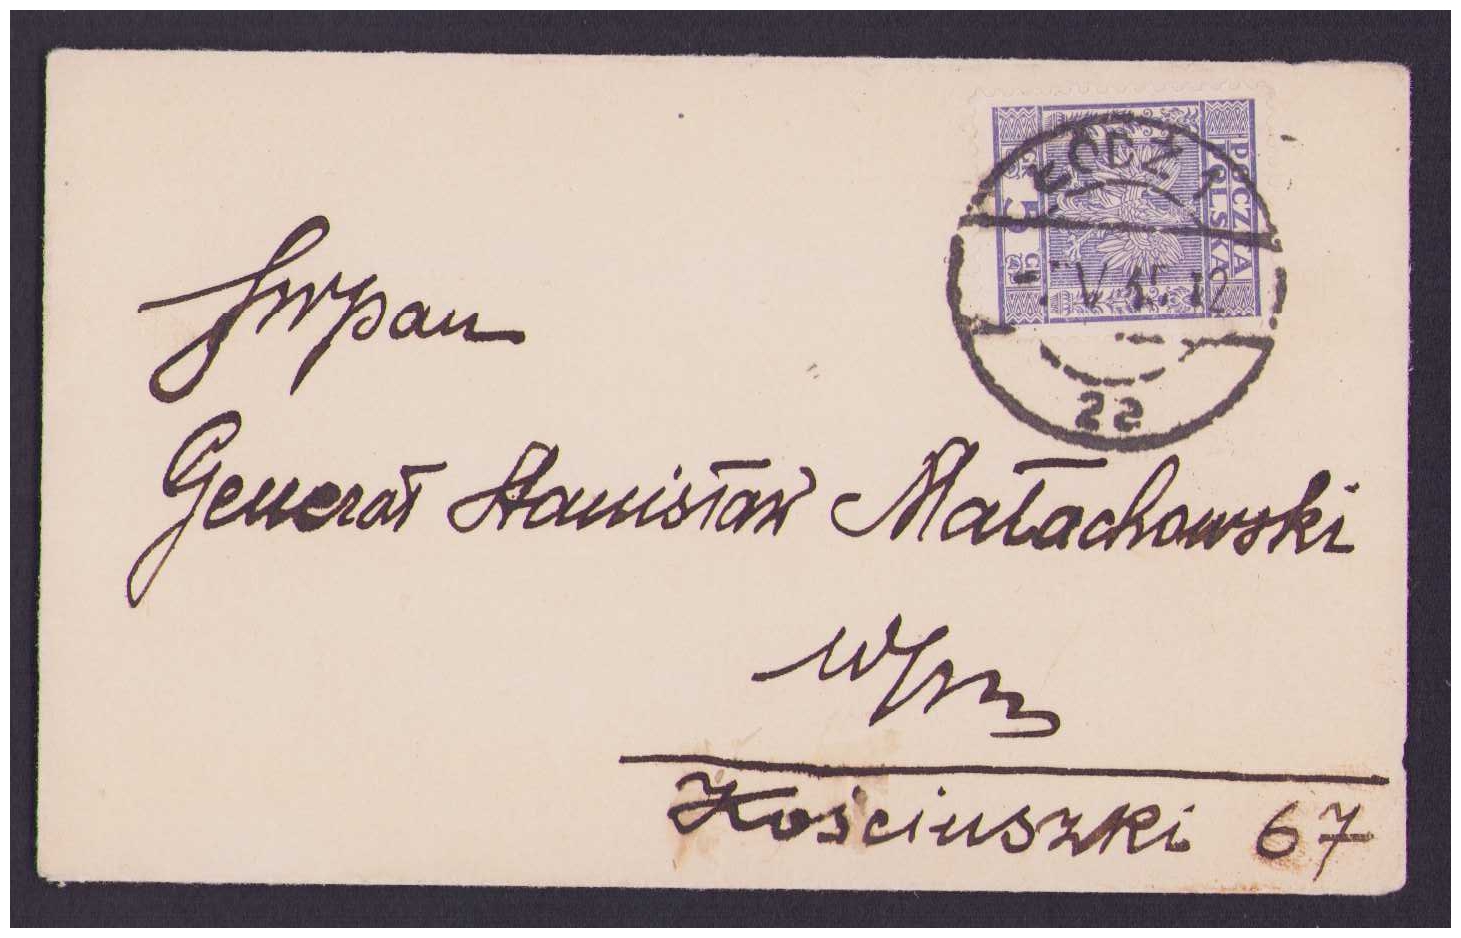 POCZTA
POLSKA
5
GR
ŁÓDŹ 1
V 35 12
22
JWPan
Generał Stanisław Małachowski
Kościuszki 67